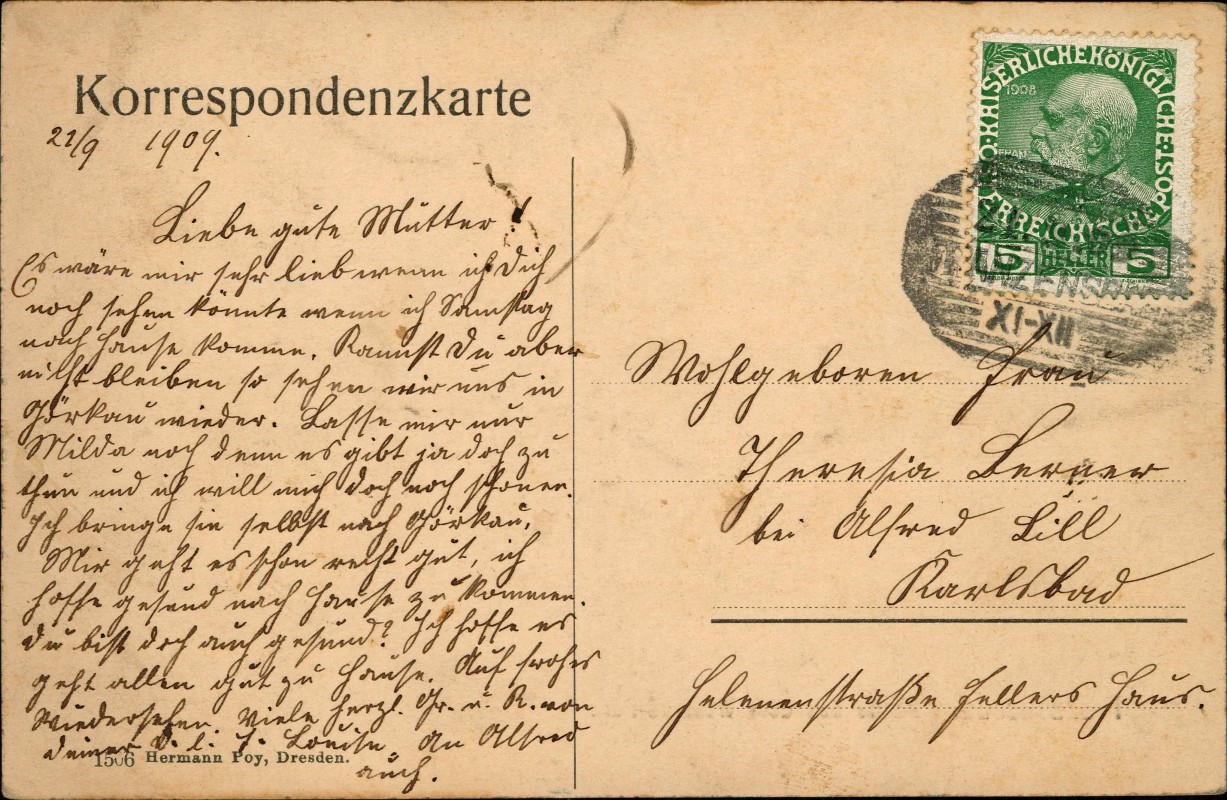 Korrespondenzkarte
21/9 1909.
Liebe gute Mutter!
Es wäre mir sehr lieb wenn ich Dich
noch sehen könnte wenn ich Samstag
nach Hause komme. Kannst Du aber
nicht bleiben so sehen wir uns in
Görkau wieder. Lasse mir nur
Milda noch denn es gibt ja doch zu
thun und ich will mich doch noch schonen.
Ich bringe sie selbst nach Görkau.
Mir geht es schon recht gut, ich
hoffe gesund nach Hause zu kommen.
Du bist doch auch gesund? Ich hoffe es
geht allen gut zu Hause. Auf frohes
Wiedersehen. Viele herzl. Gr. u. K. von
Deiner D. l. T. Louise. An Alfred
auch.
1506 Hermann Poy, Dresden.
KAISERLICHE KÖNIGLICHE
ÖSTERREICHISCHE POST
1908
5 HELLER 5
XI-XII
Wohlgeboren Frau
Theresia Berner
bei Alfred Lill
Karlsbad
Helenenstraße Fellers Haus.